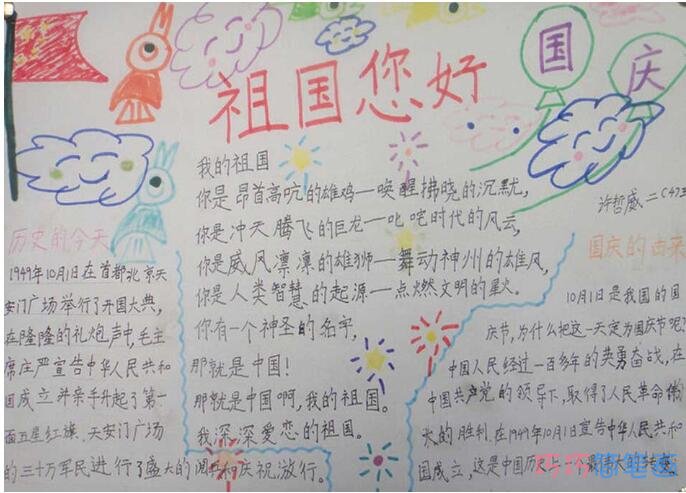 祖国您好
国庆
许哲威 二(4)
我的祖国
你是昂首高吭的雄鸡—唤醒拂晓的沉默,
你是冲天腾飞的巨龙—叱咤时代的风云,
你是威风凛凛的雄狮—舞动神州的雄风,
你是人类智慧的起源—点燃文明的星火。
你有一个神圣的名字,
那就是中国!
那就是中国啊,我的祖国。
我深深爱恋的祖国。
历史的今天
1949年10月1日在首都北京天
安门广场举行了开国大典,
在隆隆的礼炮声中,毛主
席庄严宣告中华人民共和
国成立并亲手升起了第一
面五星红旗.天安门广场
的三十万军民进行了盛大的阅兵和庆祝游行。
国庆的由来
10月1日是我国的国
庆节,为什么把这一天定为国庆节呢?
中国人民经过一百多年的英勇奋战,在
中国共产党的领导下,取得了人民革命伟
大的胜利.在1949年10月1日宣告中华人民共和
国成立,这是中国历史上一个最伟大的转变。
简笔画